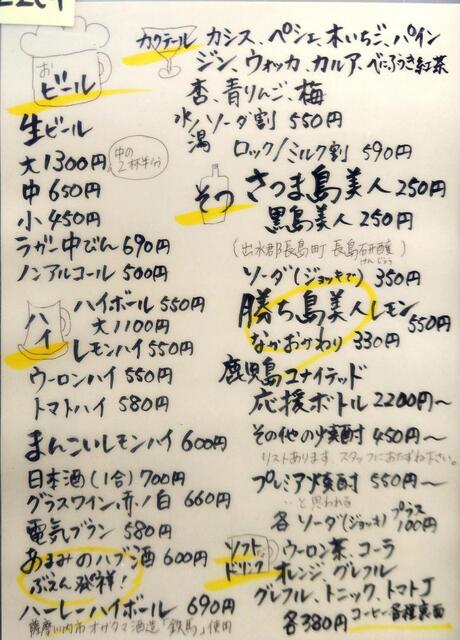 おビール
生ビール
大1300円 中の2杯半分
中650円
小450円
ラガー中びん690円
ノンアルコール500円
ハイ
ハイボール550円
大1100円
レモンハイ550円
ウーロンハイ550円
トマトハイ580円
まんこいレモンハイ600円
日本酒(1合)700円
グラスワイン,赤/白660円
電気ブラン580円
あまみのハブ酒600円
ぶえん発祥!
ハーレーハイボール690円
薩摩川内市オガタマ酒造「鉄馬」使用
カクテル
カシス、ペシェ、木いちご、パイン
ジン、ウォッカ、カルア、べにふうき紅茶
杏、青りんご、梅
水/ソーダ割550円
湯
ロック/ミルク割590円
そつ
さつま島美人250円
黒島美人250円
(出水郡長島町 長島研醸)
けんじょう
ソーダ(ジョッキで)350円
勝ち島美人レモン
550円
なかおかわり330円
鹿児島ユナイテッド
応援ボトル2200円〜
その他の焼酎450円〜
リストあります スタッフにおたずね下さい。
プレミア焼酎550円〜
…と思われる
各ソーダ(ジョッキ)プラス100円
ソフトドリンク
ウーロン茶、コーラ
オレンジ、グレフル
グレフル、トニック、トマトJ
各380円 コーヒー各種裏面